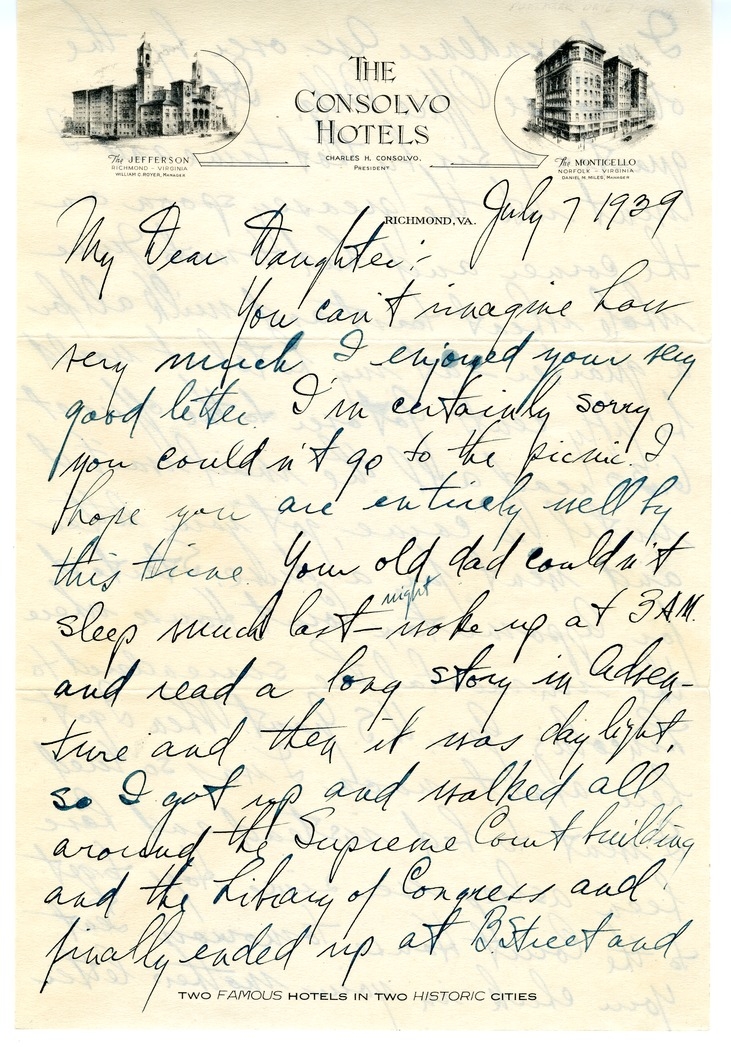 THE
CONSOLVO
HOTELS
CHARLES H. CONSOLVO.
PRESIDENT
The JEFFERSON
RICHMOND - VIRGINIA
WILLIAM C. ROYER, MANAGER
The MONTICELLO
NORFOLK - VIRGINIA
DANIEL M. MILES, MANAGER
RICHMOND, VA. July 7 1939
My Dear Daughter:-
You can't imagine how
very much I enjoyed your very
good letter. I'm certainly sorry
you couldn't go to the picnic. I
hope you are entirely well by
this time. Your old dad couldn't
sleep much last night - woke up at 3 A.M.
and read a long story in Adven-
ture and then it was day light,
so I got up and walked all
around the Supreme Court building
and the Library of Congress and
finally ended up at B. Street and
TWO FAMOUS HOTELS IN TWO HISTORIC CITIES